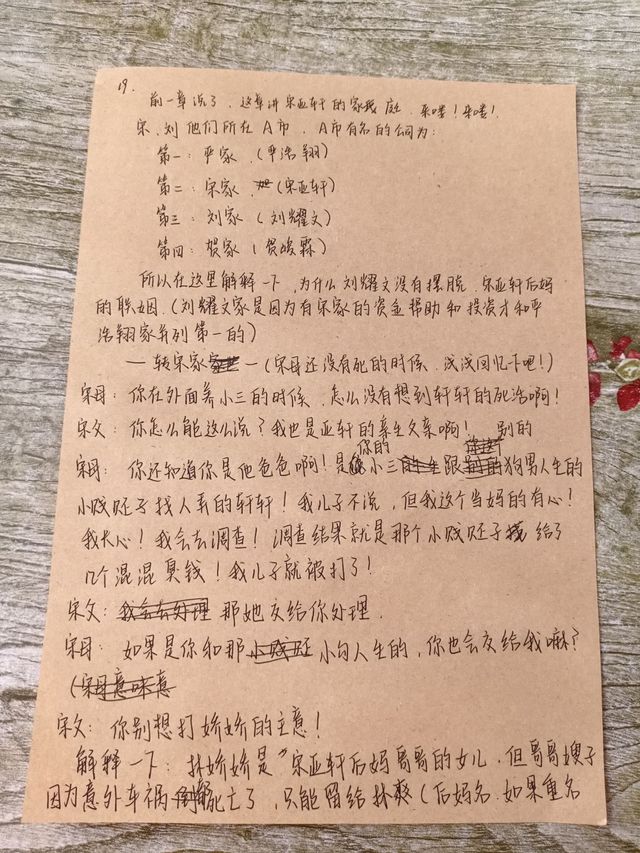 19.
前一章说了，这章讲宋亚轩的家庭，来喽！来喽！
宋、刘他们所在A市，A市有名的公司为：
第一：严家（严浩翔）
第二：宋家（宋亚轩）
第三：刘家（刘耀文）
第四：贺家（贺峻霖）
所以在这里解释一下，为什么刘耀文没有摆脱，宋亚轩后妈
的联姻.（刘耀文家是因为有宋家的资金帮助和投资才和严
浩翔家并列第一的）
—转宋家—（宋母还没有死的时候，浅浅回忆下吧！）
宋母：你在外面养小三的时候，怎么没有想到轩轩的死活啊！
宋父：你怎么能这么说？我也是亚轩的亲生父亲啊！
你的 别的
宋母：你还知道你是他爸爸啊！是小三跟狗男人生的
小贱胚子找人弄的轩轩！我儿子不说，但我这个当妈的有心！
我长心！我会去调查！调查结果就是那个小贱胚子给了
几个混混臭钱！我儿子就被打了！
宋父：我会去处理 那她交给你处理.
宋母：如果是你和那小贱胚小勾人生的，你也会交给我嘛？
（宋母意味意
宋父：你别想打娇娇的主意！
解释一下：林娇娇是“宋亚轩后妈哥哥的女儿，但哥哥嫂子
因为意外车祸死亡了，只能留给林爽（后妈名，如果重名